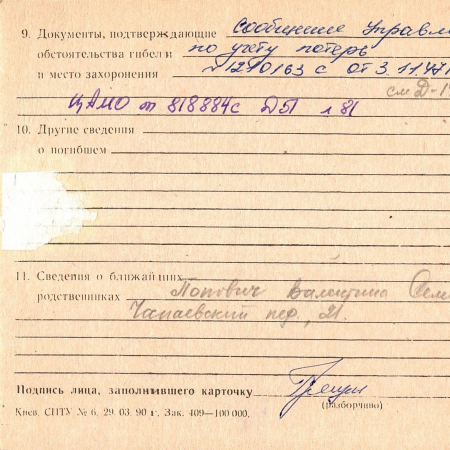 9. Документы, подтверждающие Сообщение Управле
обстоятельства гибели по учету потерь
и место захоронения №1210163 с от 3.11.47
см Д-1
ЦАМО оп 818884с Д51 л 81
10. Другие сведения
о погибшем
11. Сведения о ближайших
родственниках Попович Валентина Семе
Чапаевский пер, 21.
Подпись лица, заполнившего карточку
(разборчиво)
Киев. СПТУ № 6. 29. 03. 90 г. Зак. 409—100 000.